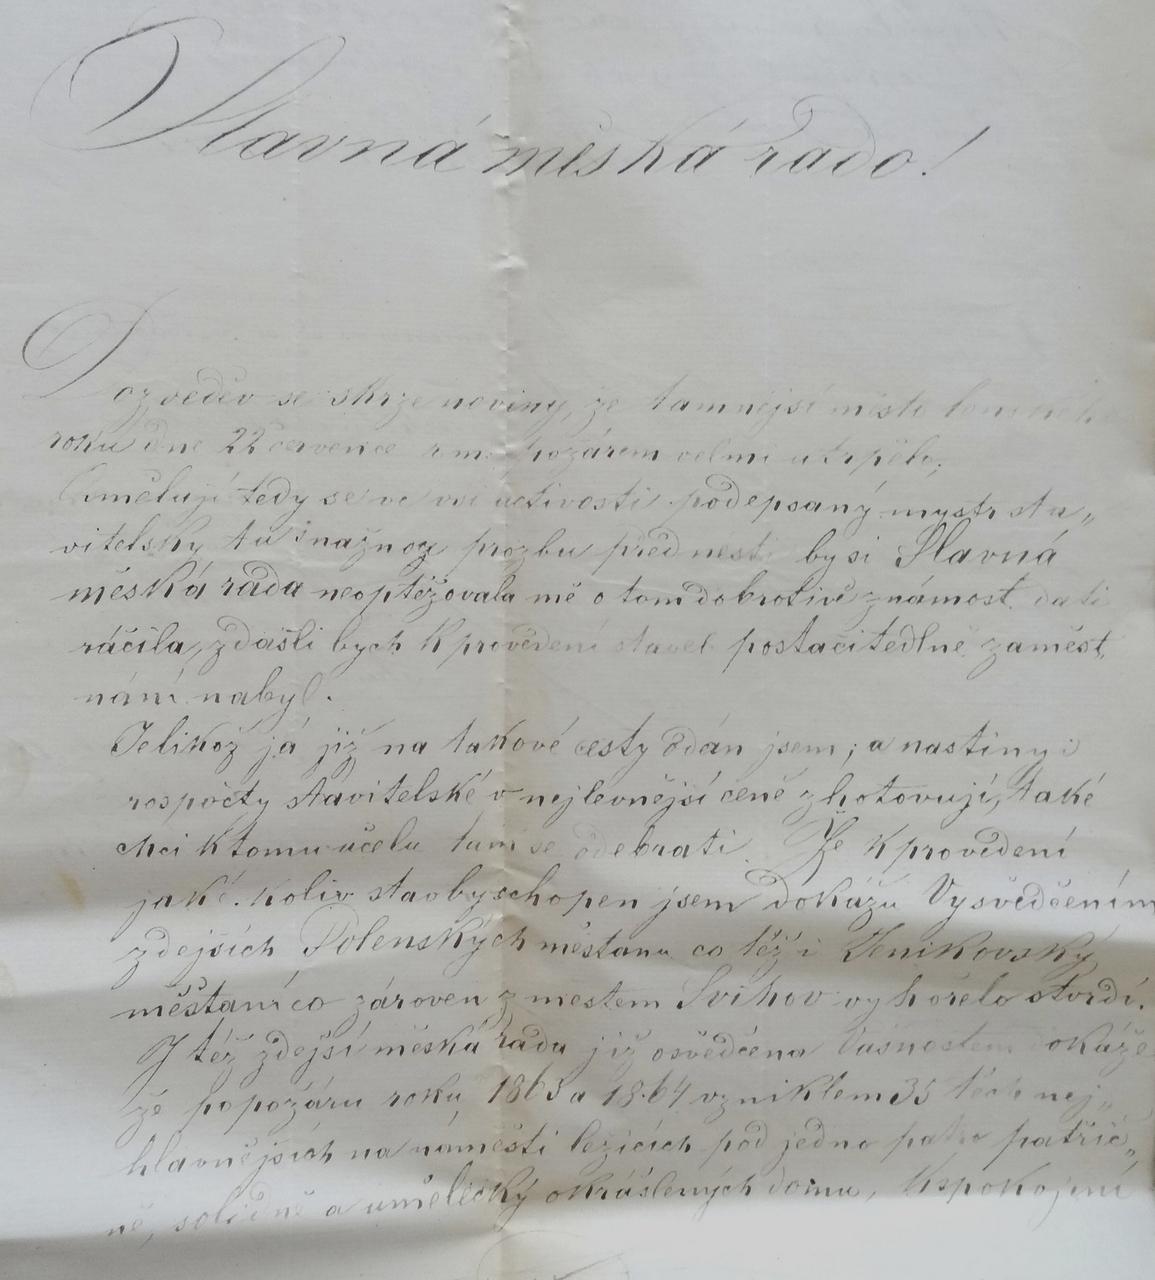 Slavná měská rado!
Dozveděv se skrze noviny, že tamnějsí město
roku dne 22 července požárem velmi utrpělo,
tedy se ve vsi uctivosti podepsaný mystr sta„
vitelsky tu snažnou prozbu přednesti by si Slavná
měská rada neoptěžovala mě o tom dobrotivě známost dati
ráčila, zdašli bych k provedení staveb postačitedlně zaměst„
nání nabyl.
Jelikož já již na takové cesty odán jsem; a nastiny i
rospočty stavitelské v nejlevnějsí ceně zhotovuji, také
chci k tomu účelu tam se odebrati. Že k provedení
jaké koliv stavby schopen jsem dokážu Vysvědčením
zdejsích Polenských městanu co též i Ženikovský
měštaní co zároven z mestem Svihov vyhořelo stvrdí.
I též zdejší měská rada již osvědčena Vásnostem dokáže
že po požáru roku 1863 a 1864 vzniklem 35 těch nej„
hlavnějsích na náměsti lezicích pod jedno patro patřič„
ně, solidně a umělecky okráslených domu, k spokojeni